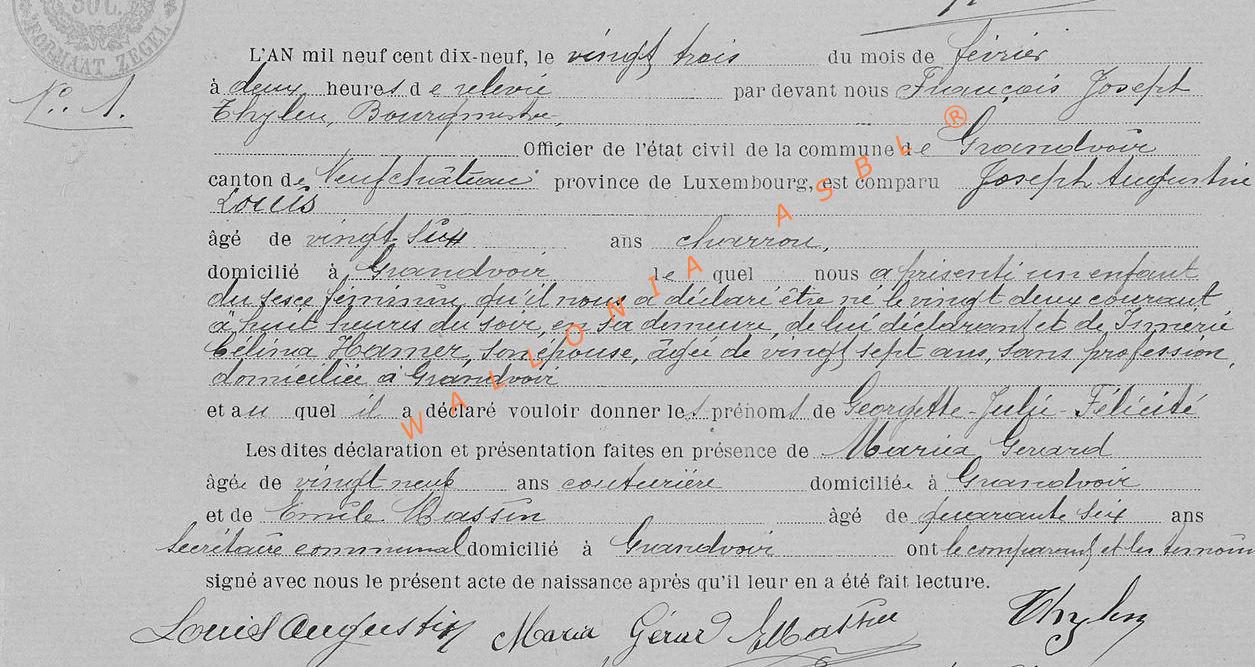 50 C.
FORMAAT ZEGEL
L'AN mil neuf cent dix-neuf, le vingt trois du mois de février
N° 1.
à deux heures de relevée par devant nous François Joseph
Thylen, Bourgmestre,
Officier de l'état civil de la commune de Grandvoir
canton de Neufchâteau province de Luxembourg, est comparu Joseph Augustin
Louis
âgé de vingt six ans charron,
domicilié à Grandvoir lequel nous a présenté un enfant
du sexe féminin, qu'il nous a déclaré être né le vingt deux courant
à huit heures du soir, en sa demeure, de lui déclarant et de
Célina Hamer, son épouse, âgée de vingt sept ans, sans profession,
domiciliée à Grandvoir
et au quel il a déclaré vouloir donner les prénoms de Georgette-Julie-Félicité
Les dites déclaration et présentation faites en présence de Maria Gérard
âgée de vingt-neuf ans couturière domiciliée à Grandvoir
et de Emile Massin âgé de quarante six ans
secrétaire communal domicilié à Grandvoir ont le comparant et les témoins
signé avec nous le présent acte de naissance après qu'il leur en a été fait lecture.
Louis Augustin Maria Gérard EMassin Thylen
WALLONIA ASBL ®